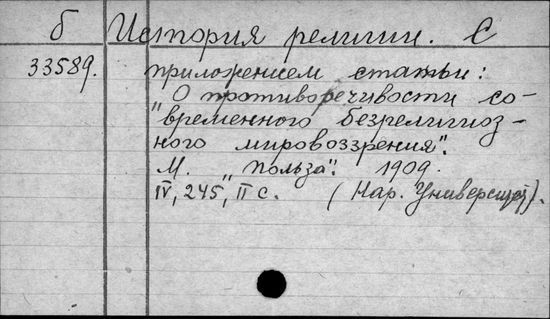 б История религии. С
33589. приложением статьи:
"О противоречивости со-
временного безрелигиоз-
ного мировоззрения".
М. "Польза". 1909.
IV, 245, II с. (Нар. Университет).